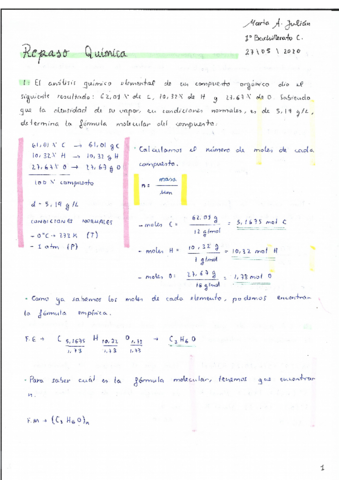 Marta A. Julián
1º Bachillerato C.
27/05/2020
Repaso Química
1. El análisis químico elemental de un compuesto orgánico dio el
siguiente resultado: 62,03 % de C, 10,32 % de H y 27,63 % de O Sabiendo
que la densidad de su vapor, en condiciones normales, es de 5,19 g/L,
determina la fórmula molecular del compuesto.
62,01 % C → 62,01 g C
10,32 % H → 10,32 g H
27,67 % O → 27,67 g O
100 % compuesto
d = 5,19 g/L
CONDICIONES NORMALES
- 0ºC → 273 K (T)
- 1 atm (P)
- Calculamos el número de moles de cada
compuesto.
n = masa
- moles C = 62,03 g / 12 g/mol = 5,1675 mol C
- moles H = 10,32 g / 1 g/mol = 10,32 mol H
- moles O: 27,67 g / 16 g/mol = 1,73 mol O
- Como ya sabemos los moles de cada elemento, podemos encontrar
la fórmula empírica.
F.E → C 5,1675/1,73 H 10,32/1,73 O 1,73/1,73 → C3H6O
- Para saber cuál es la fórmula molecular, tenemos que encontrar
n.
F.M → (C3 H6 O)n
1